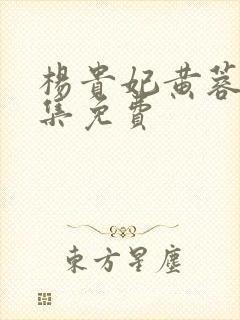 楊貴妃黄蓉
集免費
東方星塵